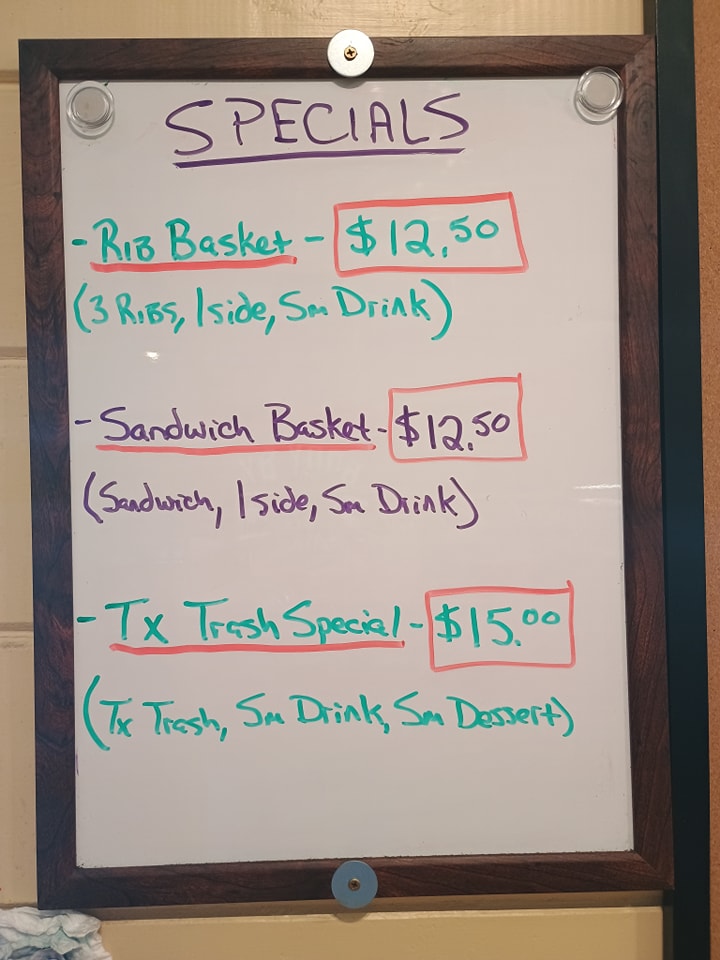 SPECIALS
- Rib Basket - $12.50
(3 Ribs, 1 side, Sm Drink)
- Sandwich Basket - $12.50
(Sandwich, 1 side, Sm Drink)
- Tx Trash Special - $15.00
(Tx Trash, Sm Drink, Sm Dessert)